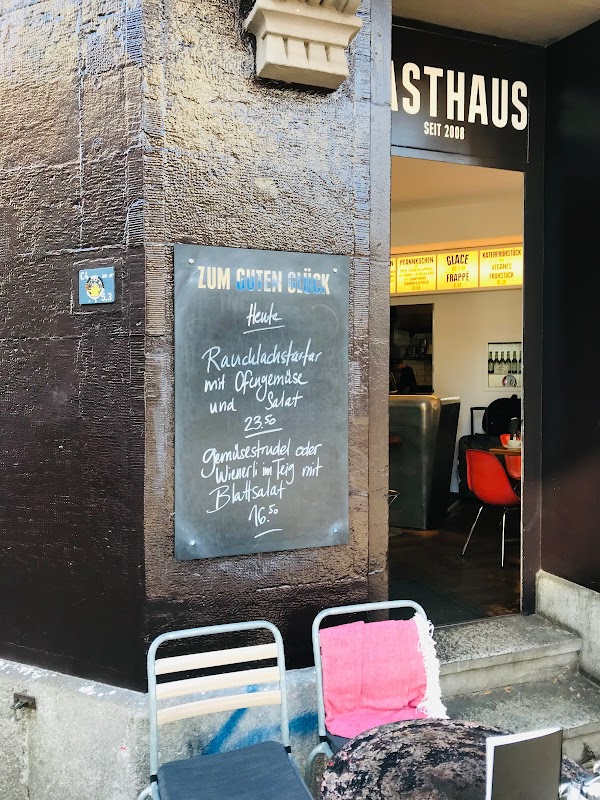 ASTHAUS
SEIT 2008
PFANNKUCHEN
GLACE
FRAPPE
KATERFRÜHSTÜCK
VEGANES
FRÜHSTÜCK
ZUM GUTEN GLÜCK
Heute
Rauchlachstartar
mit Ofengemüse
und Salat
23.50
Gemüsestrudel oder
Wienerli im Teig mit
Blattsalat
16.50